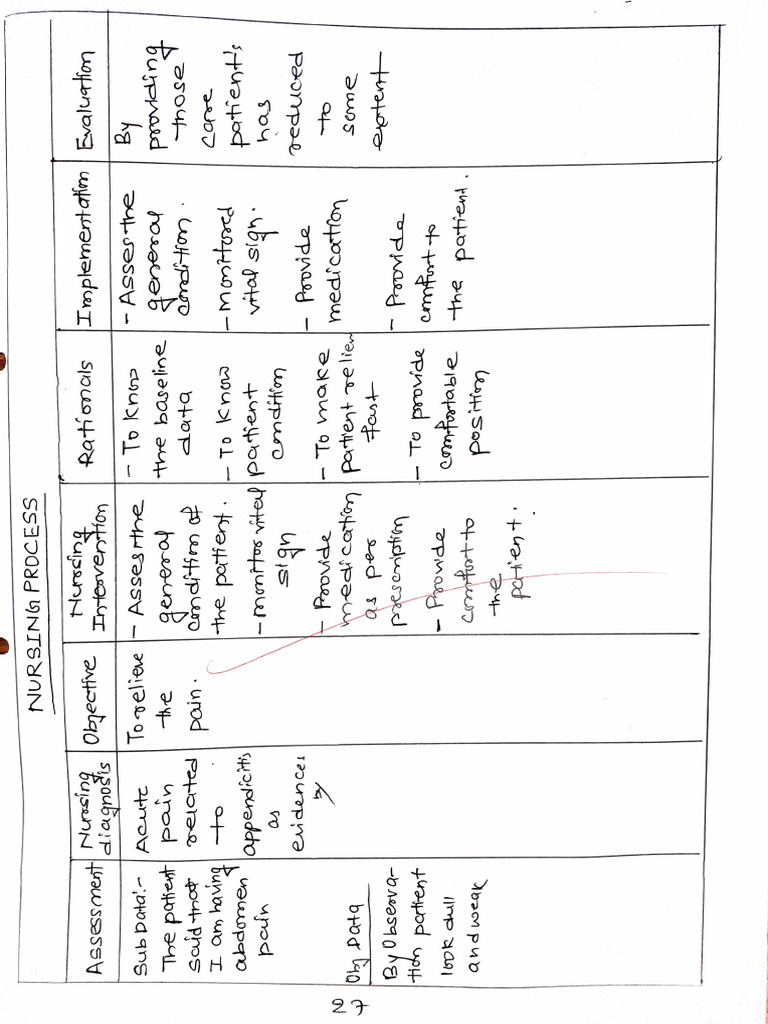 NURSING PROCESS
Assessment
Sub Data:-
The patient
said that
I am having
abdomen
pain
Obj Data
By Observa-
tion patient
look dull
and weak
Nursing
diagnosis
Acute
pain
related
to
appendicitis
as
evidences
by
Objective
To relieve
the
pain.
Nursing
Intervention
- Asses the
general
condition of
the patient.
- monitor vital
sign
- Provide
medication
as per
prescription
- Provide
comfort to
the
patient.
Rationals
- To know
the baseline
data
- To know
patient
condition
- To make
patient reliev
fast
- To provide
comfortable
position
Implementation
- Asses the
general
condition.
- monitored
vital sign.
- Provide
medication
- Provide
comfort to
the patient.
Evaluation
By
providing
those
care
patient's
has
reduced
to
some
extent
27